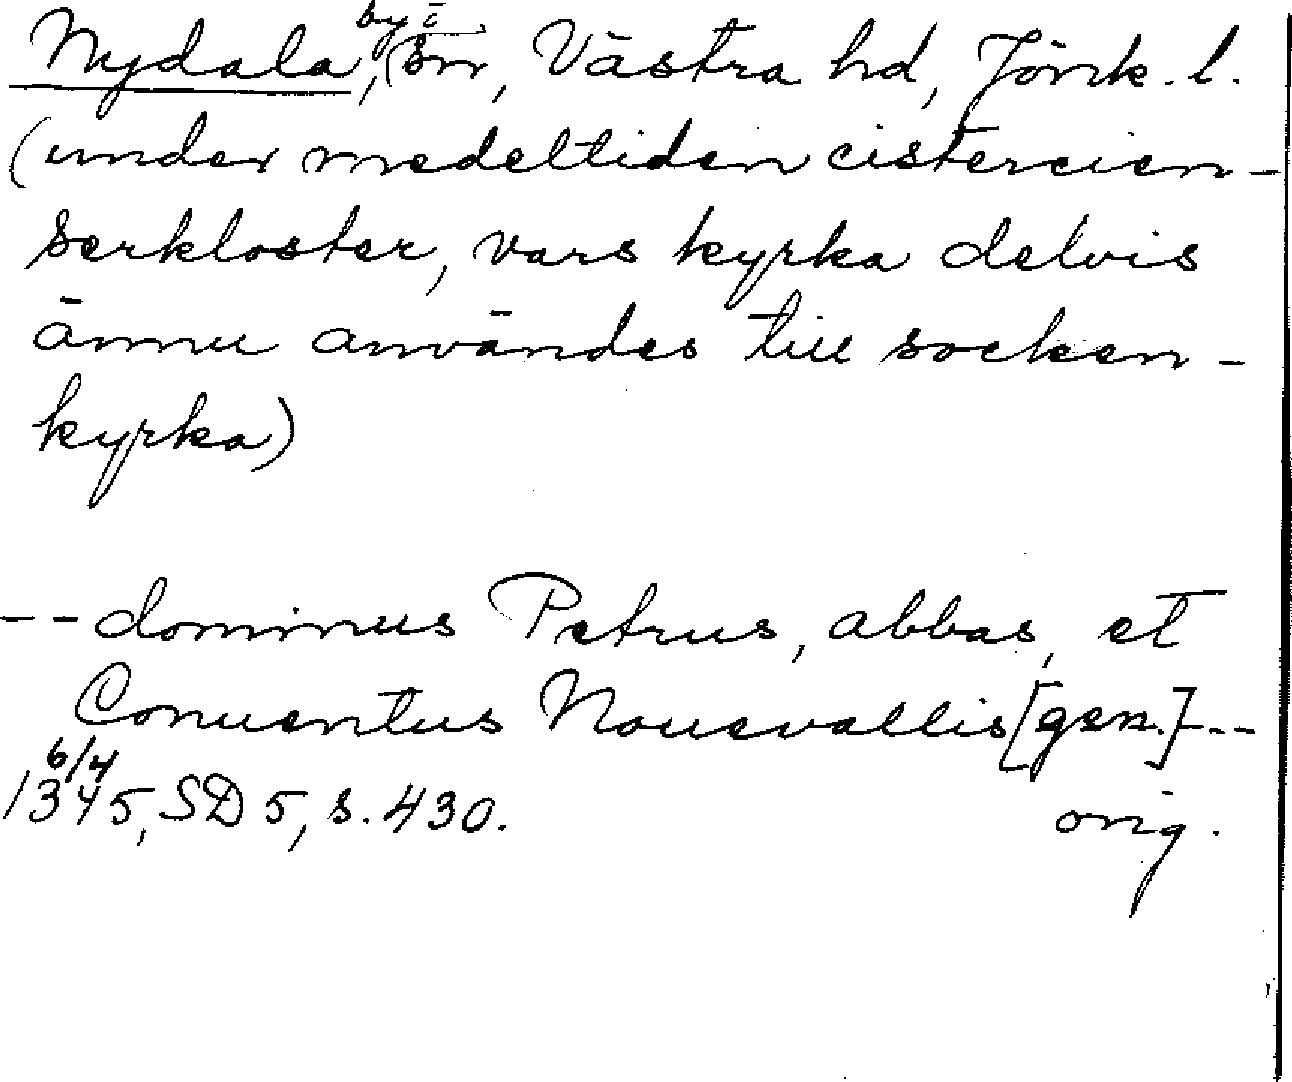 Nydala, by i sn, Västra hd, Jönk. l.
(under medeltiden cistercien-
serkloster, vars kyrka delvis
ännu användes till socken-
kyrka)
-- dominus Petrus, abbas, et
Conuentus Nouevallis [gen.] --
6/4
1345, SD 5, s. 430. orig.